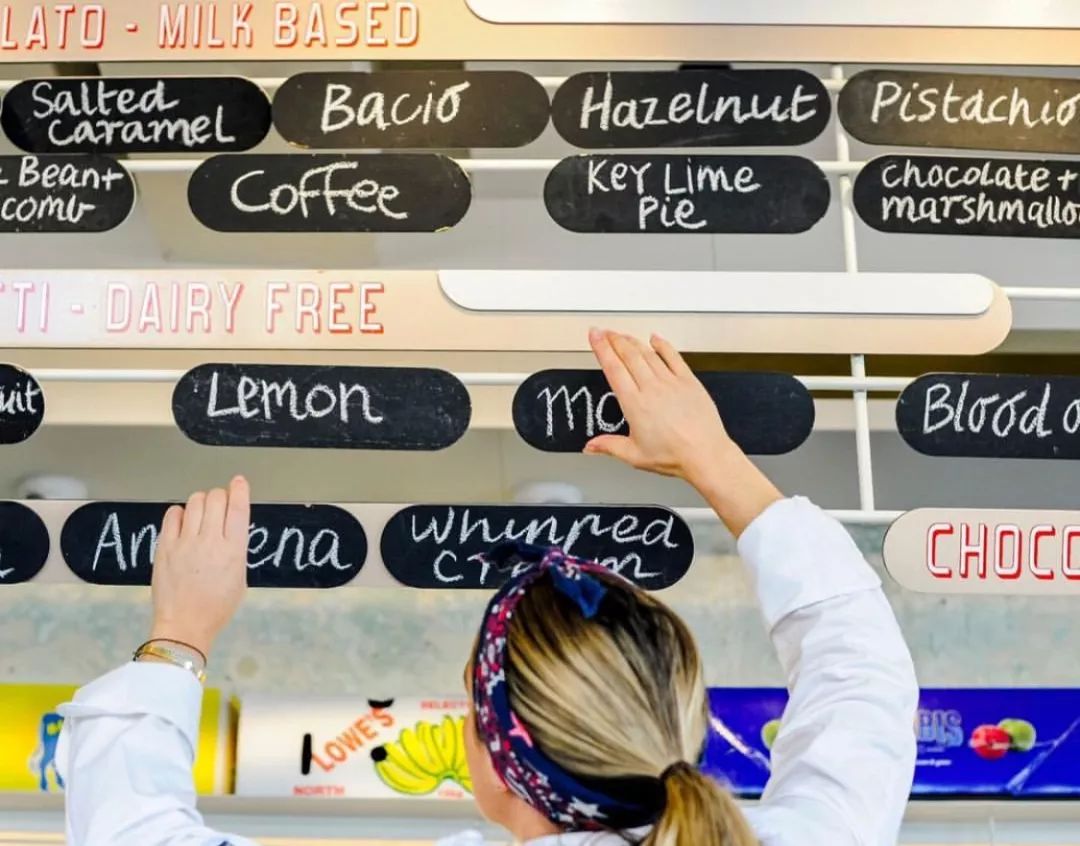 LATO - MILK BASED
Salted
caramel
Bacio
Hazelnut
Pistachio
Bean+
comb
Coffee
Key Lime
Pie
chocolate +
marshmallo
TTI - DAIRY FREE
uit
Lemon
mo
Blood o
Am ena
whipped
cream
CHOCO
LOWE'S
NORTH